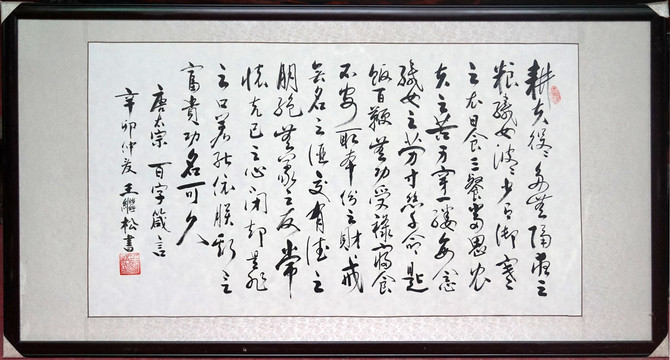 耕夫役役多無隔宿之
粮織女波波少有御寒
之衣日食三餐當思农
夫之苦身穿一縷每念
織女之劳寸絲千命匙
飯百鞭無功受禄寢食
不安取本份之財戒
無名之酒交有德之
朋絕無義之友常
懷克己之心闭却是非
之口若能依朕斯言
富貴功名可久
唐太宗 百字箴言
辛卯仲夏王繼松書